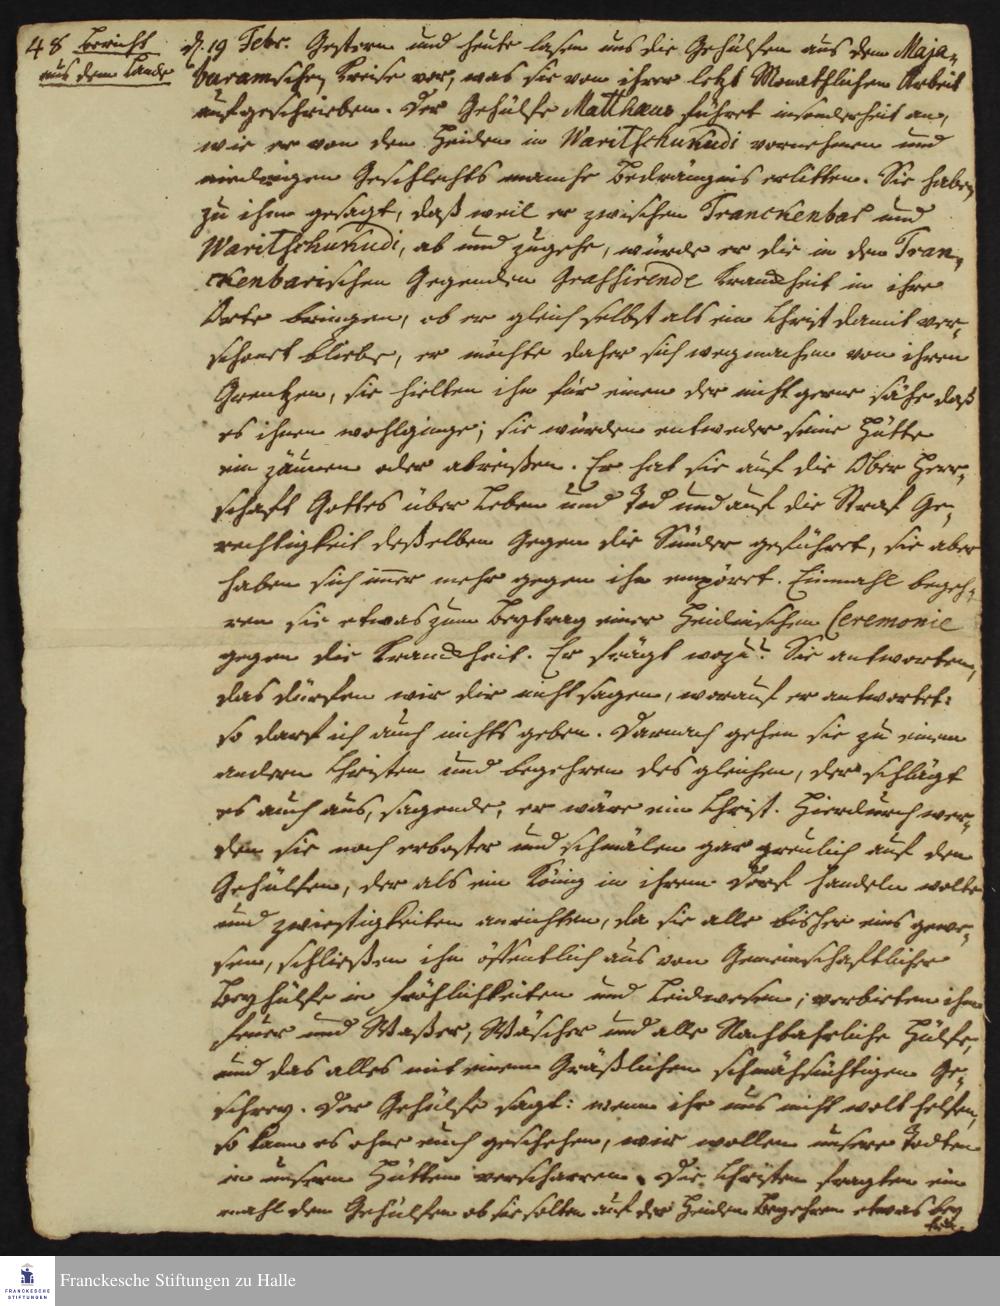 48 Bericht
aus dem Lande
d. 19 Febr. Gestern und heute lasen uns die Gehülfen aus dem Maja-
buramschen Kreise vor, was sie von ihrer letzt Monathlichen Arbeit
aufgeschrieben. Der Gehülfe Matthaeus führet insonderheit an,
wie er von den Heiden in Waritschukudi vornehmen und
niedrigen Geschlechts manche Bedrängnis erlitten. Sie haben
zu ihm gesagt, daß weil er zwischen Tranckenbar und
Waritschukudi, ab und zugehe, würde er die in den Tran-
ckenbarischen Gegenden Grassirende Kranckheit in ihre
Orte bringen, ob er gleich selbst als ein Christ damit ver-
schonet bliebe, er möchte daher sich wegmachen von ihren
Grentzen, sie hielten ihn für einen der nicht gerne sähe daß
es ihnen wohlginge; sie würden entweder seine Hütte
ein zäunen oder abreißen. Er hat sie auf die Ober Herr-
schaft Gottes über Leben und Tod und auf die Straf Ge-
rechtigkeit deßelben gegen die Sünder geführet, sie aber
haben sich immer mehr gegen ihn empöret. Einmahl begeh-
ren sie etwas zum Beytrag einer Heidnischen Ceremonie
gegen die Kranckheit. Er frägt wozu? Sie antworten,
das dürfen wir dir nicht sagen, worauf er antwortet:
so darf ich auch nichts geben. Darnach gehen sie zu einem
andern Christen und begehren des gleichen, der schlägt
es auch aus, sagende, er wäre ein Christ. Hierdurch wer-
den sie noch erboster und schmälen gar greulich auf den
Gehülfen, der als ein König in ihrem Dorf handeln wolte
und zwistigkeiten anrichten, da sie alle bisher eins gewe-
sen, schließen ihn öffentlich aus von Gemeinschaftlicher
Beyhülfe in Fröhlichkeiten und Leidwesen; verbieten ihm
Feuer und Waßer, Wäscher und alle Nachbahrliche Hülfe,
und das alles mit einem Gräßlichen schmähsüchtigen Ge-
schrey. Der Gehülfe sagt: wenn ihr uns nicht wolt helfen,
so kann es ohne euch geschehen, wir wollen unsere Todten
in unsern Hütten verscharren. Die Christen fragten ein
mahl den Gehülfen ob sie solten auf der Heiden Begehren etwas bey
Franckesche Stiftungen zu Halle
FRANCKESCHE
STIFTUNGEN